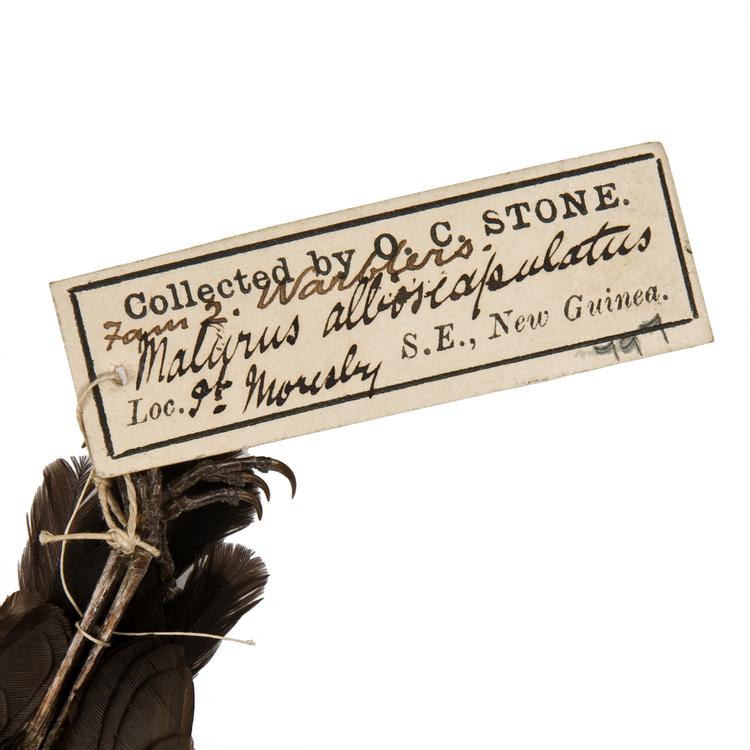 Collected by O. C. STONE.
Fam 2. Warblers.
Malurus alboscapulatus
Loc. Pt Moresby S.E., New Guinea.